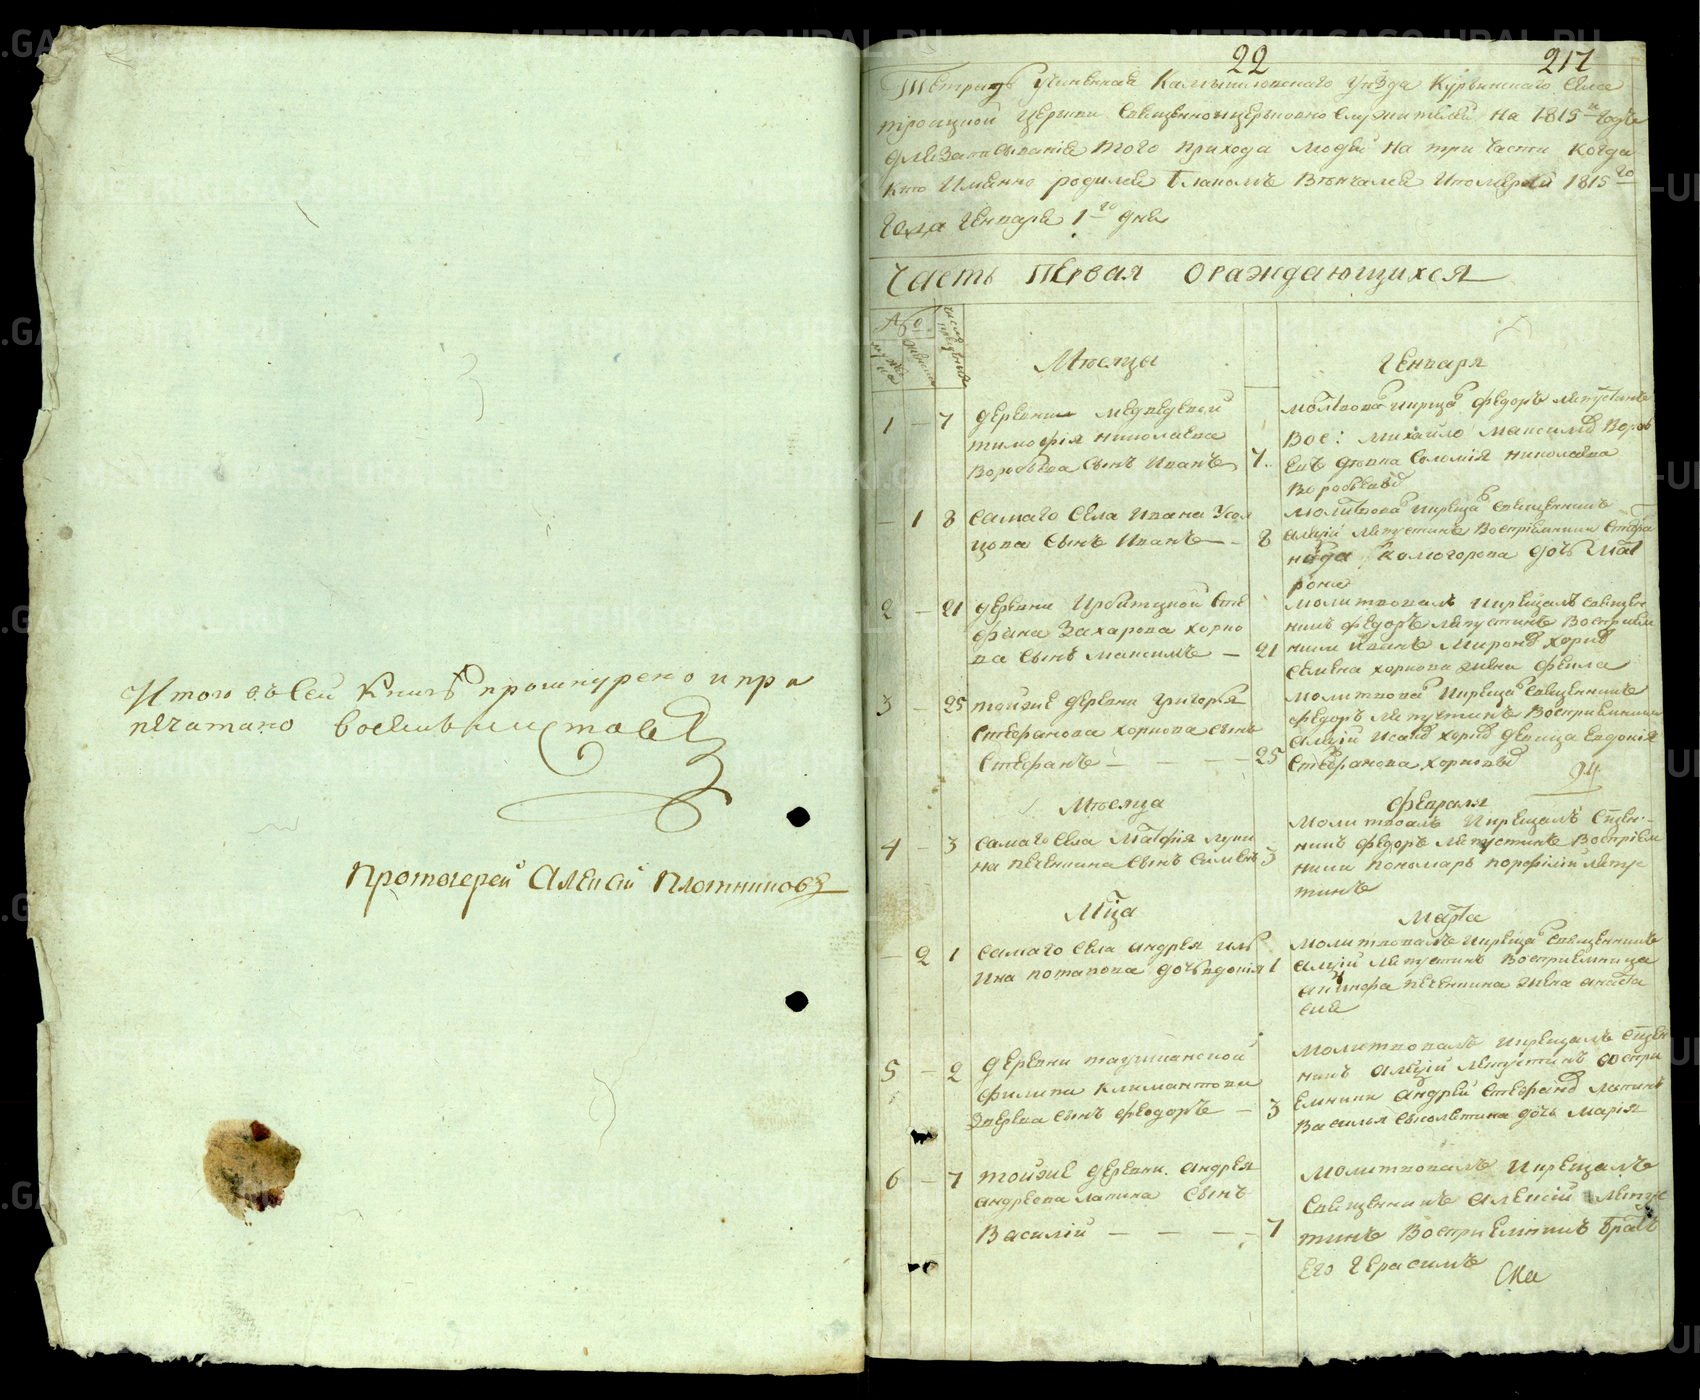 Итого въ сей Книгѣ прошнурено и при
печатано восемь листовъ
Протоиерей Алексiй Плотниковъ
22 217
Тетрадь учиненная Камышловскаго Уѣзда Курьинскаго Села
троицкой Церкви Священноицерковно служителей на 1815й годъ
для записыванiя того прихода людей на три части когда
кто имянно родился бракомъ венчался и померъ 1815го
Года Генваря 1го дня
Часть Первая о раждающихся
№
Мѣсяца Генваря
1 - 7 деревни медведевой
тимофiя николаева
воробьева сынъ иванъ
7. молитвова и креща федоръ лепустинъ
вос: михайло максимо вороб
евъ девка соломiя николаева
воробьева
- 1 8 самаго села ивана усол
цова сынъ иванъ
8 молитвова креща священникъ
алеѯiй лепустинъ восприемники
колмогорова дочь мат
рона
2 - 21 деревни ирбитцкой сте
фана захарова хорко
ва сынъ максимъ -
21 молитвовалъ и крещалъ священ
никъ федоръ лепустинъ восприем
ники иванъ миронов хорков
семена хоркова жена фекла
3 - 25 тойже деревни григорья
стефанова хоркова сынъ
стефанъ - - - -
25 молитвова и креща священникъ
федоръ лепустинъ восприемники
алеѯiй исаков хорков девица евдокiя
стефанова хоркова
94
Мѣсяца февраля
4 - 3 самаго села матфiя луки
на печеркина сынъ симеонъ
3 молитвовалъ и крещалъ сщен:
никъ федоръ лепустинъ восприем
ники пономарь порфилий лепус
тинъ
Мца Марта
- 2 1 самаго села андрея иль
ина потапова дочь евдокiя
1 молитвовалъ и креща священникъ
алеѯiй лепустинъ восприемница
печеркина жена анаста
сия
5 - 2 деревни таушканской
филипа климантова
зверева сынъ феодоръ -
3 молитвовалъ и крещалъ сщен
никъ алеѯiй лепустинъ воспри
емники андрей стефанов лапинъ
василья дочь марiя
6 - 7 тойже деревни андрея
андреева лапина сынъ
василiй - - - -
7 молитвовалъ и крещалъ
священникъ алексiй лепус
тинъ восприемникъ братъ
его герасимъ